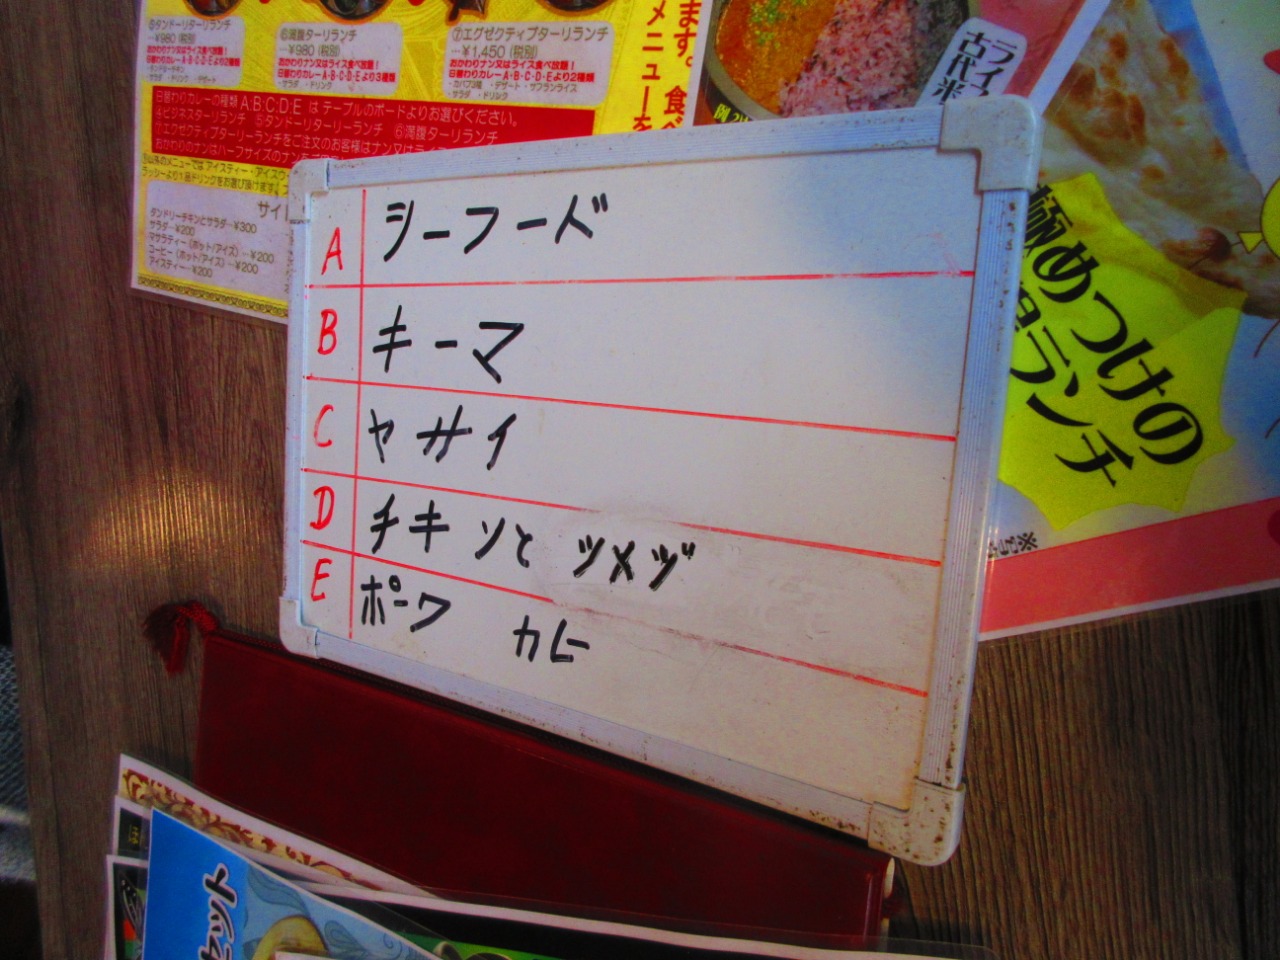 ⑤タンドーリターリランチ
…¥980(税別)
おかわりナン又はライス食べ放題!
日替わりカレーA・B・C・D・Eより2種類
⑥満腹ターリランチ
…¥980(税別)
おかわりナン又はライス食べ放題!
日替わりカレーA・B・C・D・Eより3種類
・サラダ ・ドリンク
⑦エグゼクティブターリランチ
…¥1,450(税別)
おかわりナン又はライス食べ放題!
日替わりカレーA・B・C・D・Eより2種類
・カバブ3種 ・デザート ・サフランライス
・サラダ ・ドリンク
日替わりカレーの種類 A・B・C・D・E はテーブルのボードよりお選びください。
④ビジネスターリランチ ⑤タンドーリターリーランチ ⑥満腹ターリランチ
⑦エグゼクティブターリーランチをご注文のお客様はナン又はライス
おかわりのナンはハーフサイズのナンを
サイ
タンドリーチキンとサラダ…¥300
サラダ…¥200
マサラティー(ホット/アイス)…¥200
コーヒー(ホット/アイス)…¥200
アイスティー…¥200
ます。食べ
メニューを
ライス
古代米
極めつけの
ランチ
A シーフード
B キーマ
C ヤサイ
D チキンと ツメヅ
E ポーク カレー
セット